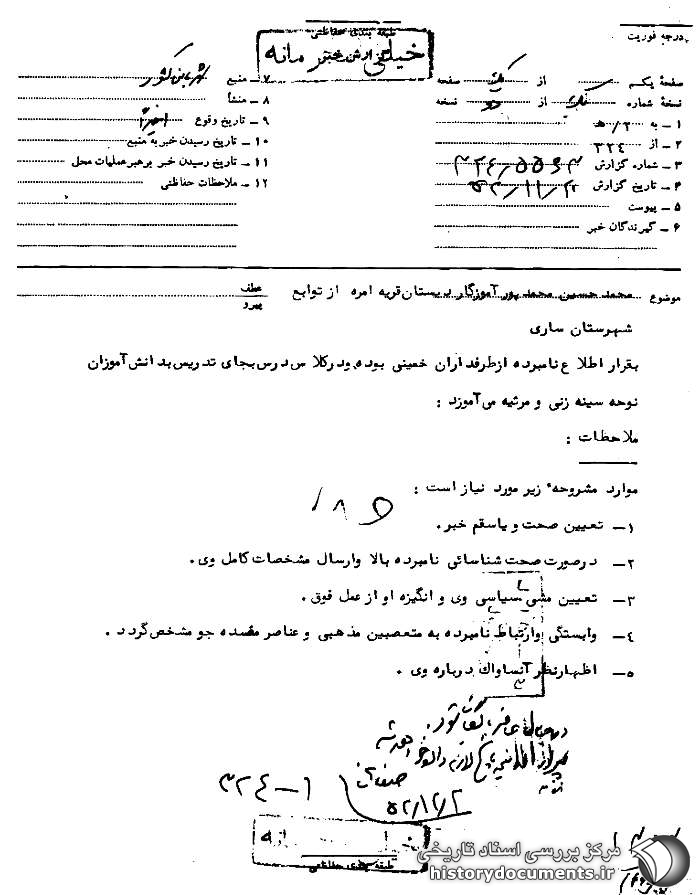 درجه فوریت
طبقه بندی حفاظتی
خیلی محرمانه
صفحهٔ یکم از یک صفحه
نسخهٔ شماره از دو نسخه
۱ – به ۵/۲ هـ
۲ – از ۳۲٤
۳ – شماره گزارش
۴ – تاریخ گزارش ۵۲/۱۱/۲
۵ – پیوست
۶ – گیرندگان خبر
۷ – منبع شهربانی کشور
۸ – منشأ
۹ – تاریخ وقوع اخیراً
۱۰ – تاریخ رسیدن خبر به منبع
۱۱ – تاریخ رسیدن خبر برهبر عملیات محل
۱۲ – ملاحظات حفاظتی
موضوع محمد حسین محمد پور آموزگار دبستان قریه امره از توابع
عطف
پیرو
شهرستان ساری
بقرار اطلاع نامبرده از طرفداران خمینی بوده و در کلاس درس بجای تدریس بدانش‌آموزان
نوحه سینه زنی و مرثیه می‌آموزد :
ملاحظات :
موارد مشروحه زیر مورد نیاز است :
۱– تعیین صحت و یا سقم خبر .
۲– در صورت صحت شناسائی نامبرده بالا و ارسال مشخصات کامل وی .
۳– تعیین مشی سیاسی وی و انگیزه او از عمل فوق .
٤– وابستگی و ارتباط نامبرده به متعصبین مذهبی و عناصر مفسده جو مشخص گردد .
۵– اظهار نظر آنساواک درباره وی .
۳۲٤–۱
۵۲/۱۲/۲
طبقه بندی حفاظتی
مرکز بررسی اسناد تاریخی
historydocuments.ir